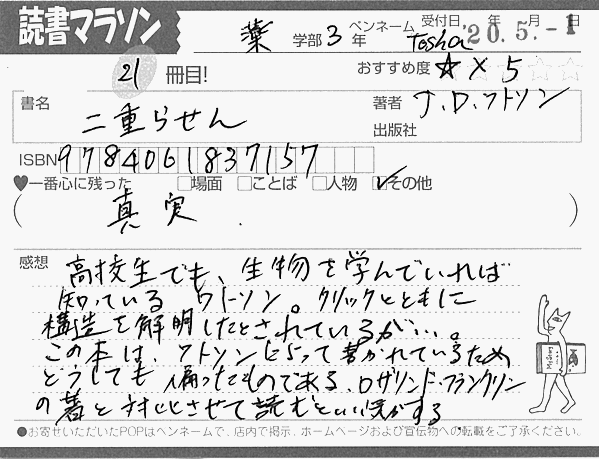 読書マラソン
薬 学部 3 年 ペンネーム Toshei 受付日 '20.年5.月-1日
21 冊目! おすすめ度 ☆×5
書名 二重らせん 著者 J.D.ワトソン
出版社
ISBN 9784061837157
♥一番心に残った □場面 □ことば □人物 ☑その他
( 真実 . )
感想 高校生でも、生物を学んでいれば
知っている ワトソン。クリックとともに
構造を解明したとされているが…。
この本は、ワトソンによって書かれているため
どうしても偏ったものである、ロザリンド・フランクリン
の著と対比させて読むといい気がする
●お寄せいただいたPOPはペンネームで、店内で掲示、ホームページおよび宣伝物への転載をご了承ください。